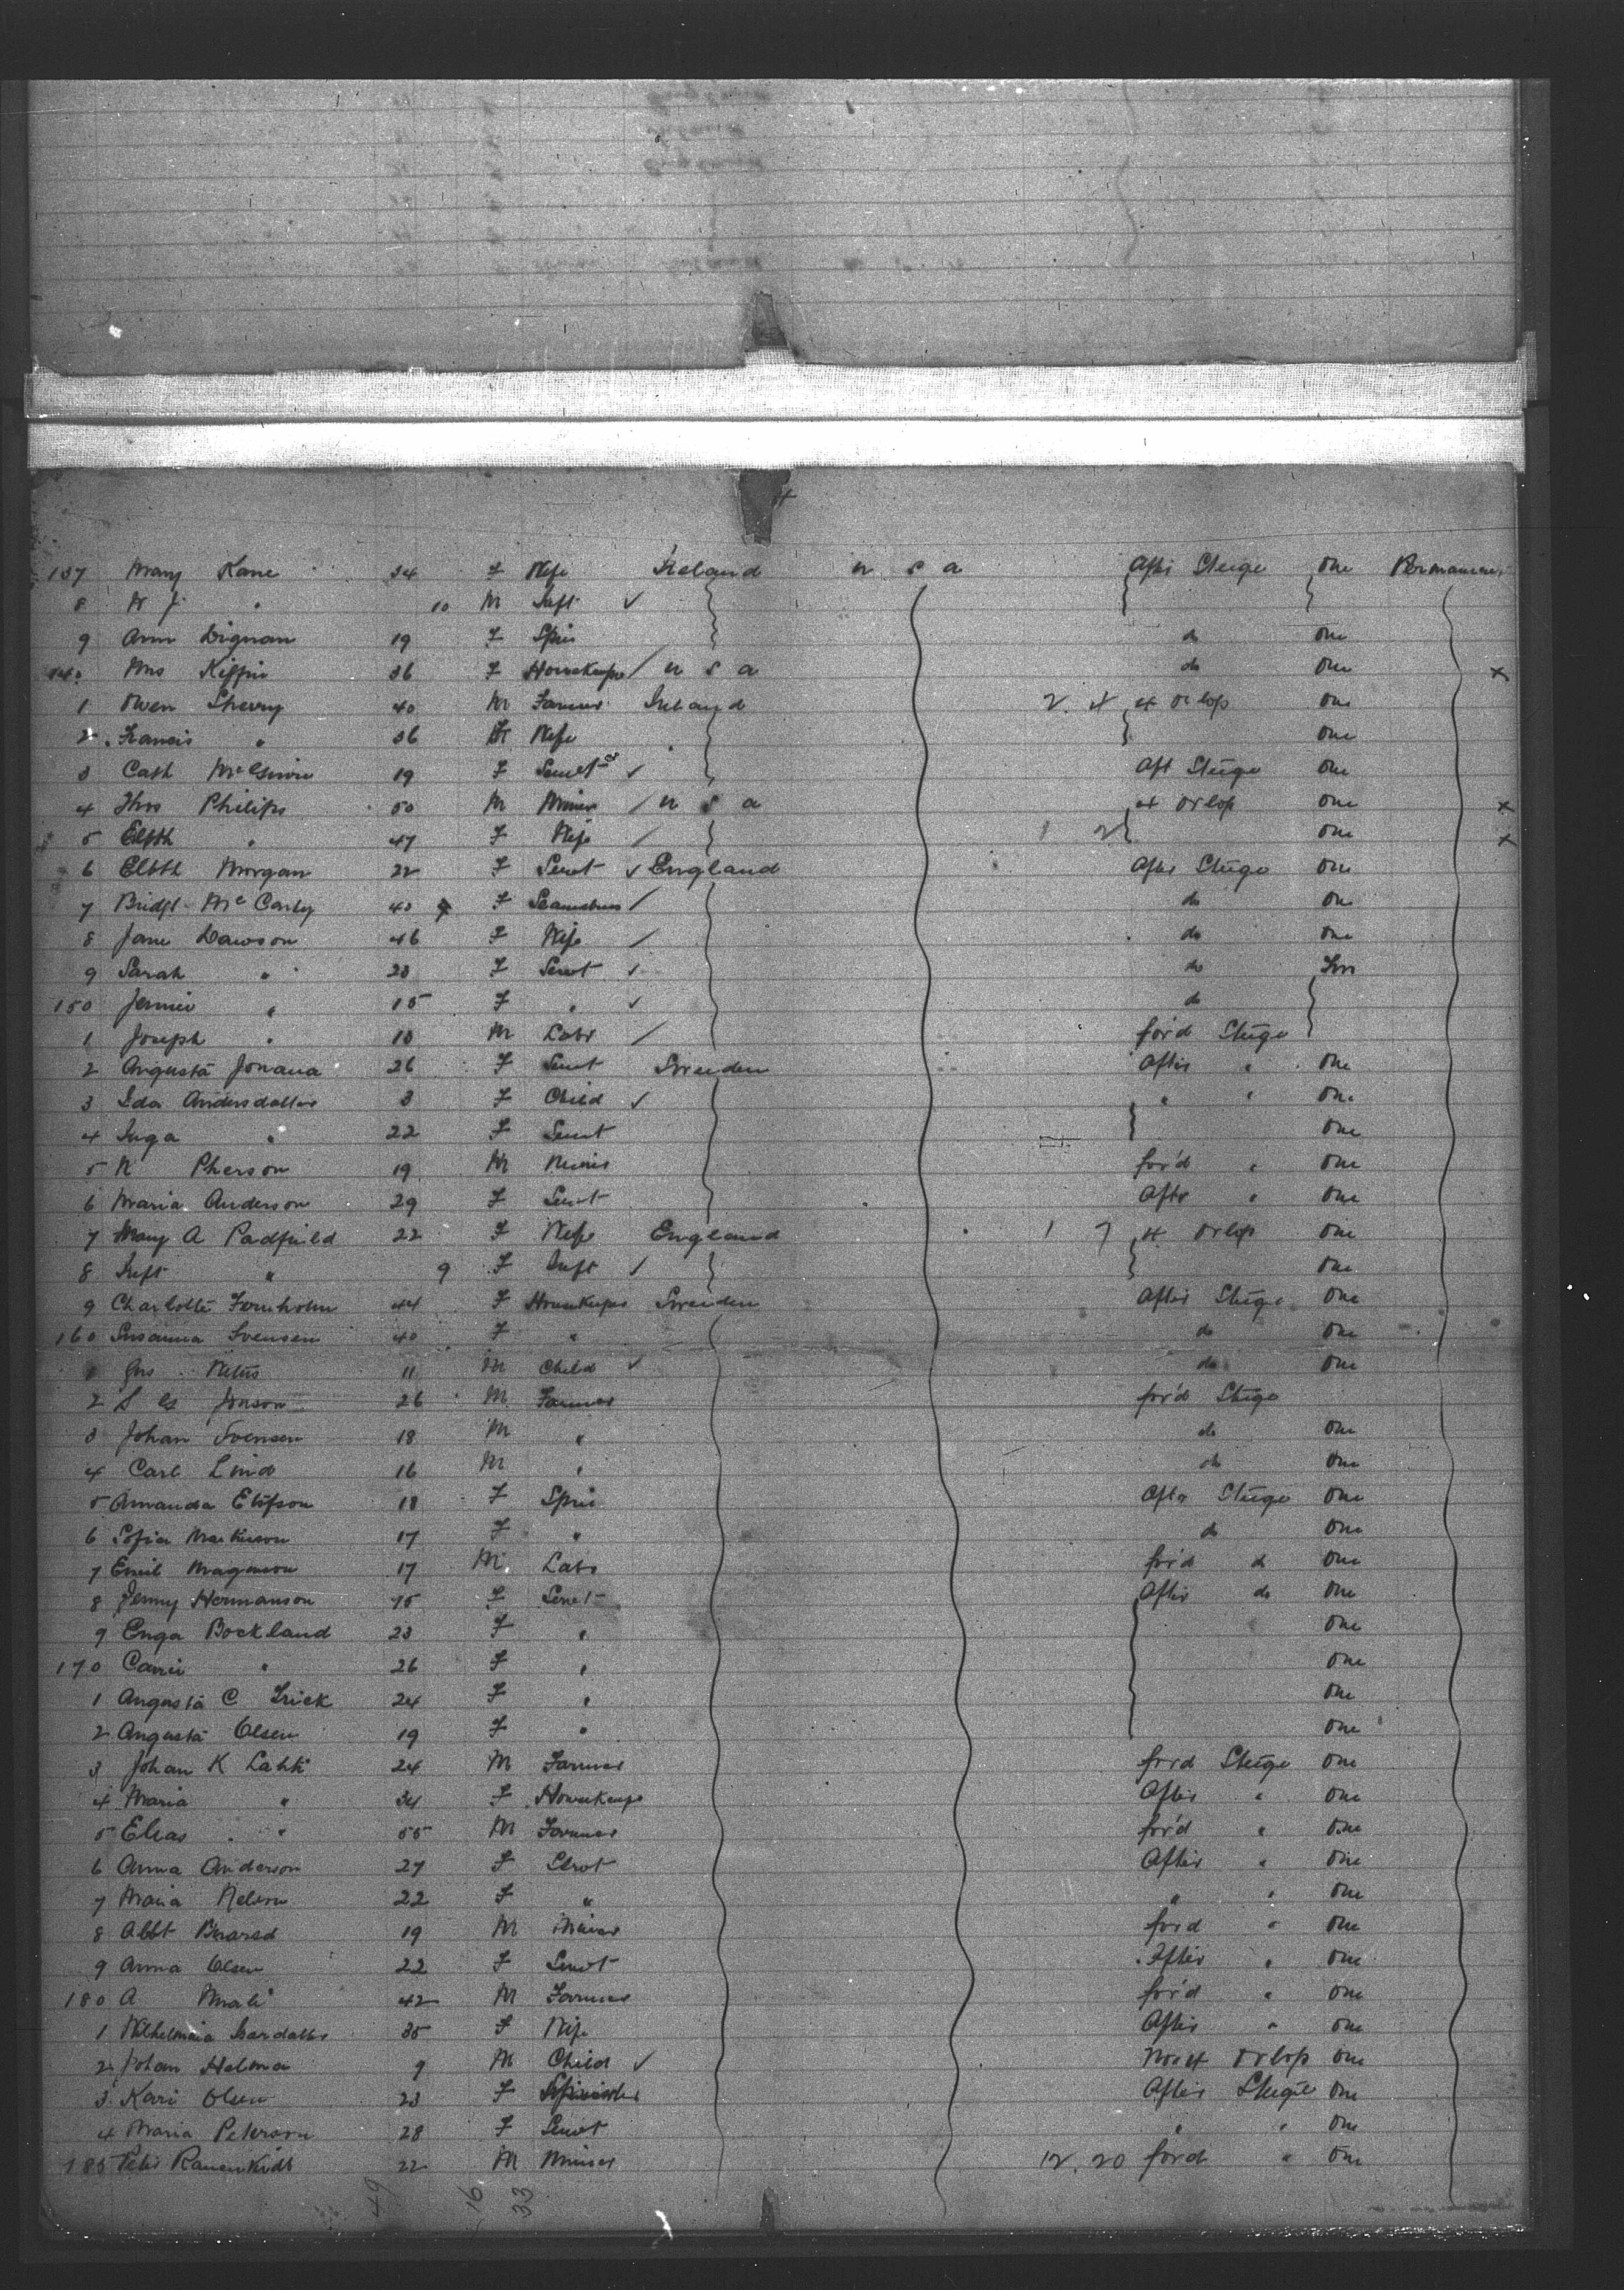 137 Mary Kane 34 F Wife Ireland U S A After Steerge One Permanent
8 W J " 10 M Inft ✓
9 Ann Dignan 19 F Spin do One
140 Mrs Kiffin 36 F Housekeeper / U S A do One x
1 Owen Sherry 40 M Farmer Ireland 2. 4 4 Orlop One
2 Francis " 36 F Wife One
3 Cath McGinnis 19 F Servt ✓ Aft Steerge One
4 Thos Philips 50 M Miner / U S A 4 Orlop One x
5 Elbth " 47 F Wife / 1 2 One x
6 Elbth Morgan 22 F Servt ✓ England After Steerge One
7 Bridgt McCarty 40 F Seamstress / do One
8 Jane Dawson 46 F Wife / do One
9 Sarah " 20 F Servt ✓ do
150 Jennie " 15 F " ✓ do
1 Joseph " 10 M Labr / for'd Steerge
2 Augusta Jonana 26 F Servt Sweeden After " One
3 Ida Andersdatter 3 F Child ✓ " " One
4 Inga " 22 F Servt One
5 N Pherson 19 M Miner for'd " One
6 Maria Anderson 29 F Servt Aftr " One
7 Mary A Padfield 22 F Wife England 1 4 Orlop One
8 Inft " 9 F Inft / One
9 Charlotte Fernholm 44 F Housekeeper Sweeden After Steerge One
160 Susanna Svensen 40 F " do One
1 Gus 11 M Child ✓ do One
2 Jonson 26 M Farmer for'd Steerge
3 Johan Svensen 18 M " do One
4 Carl Lind 16 M " do One
5 Amanda Elifson 18 F Spin After Steerge One
6 Sofia Martinson 17 F " do One
7 Emil Magnuson 17 M Labr for'd d One
8 Jenny Hermanson 15 F Servt After do One
9 Enga Bockland 23 F " One
170 Carri " 26 F " One
1 Augusta C Frick 24 F " One
2 Augusta Olsen 19 F " One
3 Johan K Lahti 24 M Farmer for'd Steerge One
4 Maria " 34 F Housekeeper After " One
5 Elias " 55 M Farmer for'd " One
6 Anna Anderson 27 F Servt After " One
7 Maria Nelson 22 F " " " One
8 Albt 19 M Miner for'd " One
9 Anna Olsen 22 F Servt After " One
180 A 42 M Farmer for'd " One
1 Wilhelmina 35 F Wife After " One
2 Johan Helma 9 M Child ✓ No 4 Orlop One
3 Kari Olsen 23 F Spinster After Steerge One
4 Maria Peterson 28 F Servt " " One
185 Peter 22 M Miner 12. 20 for'd " One
49 16 33